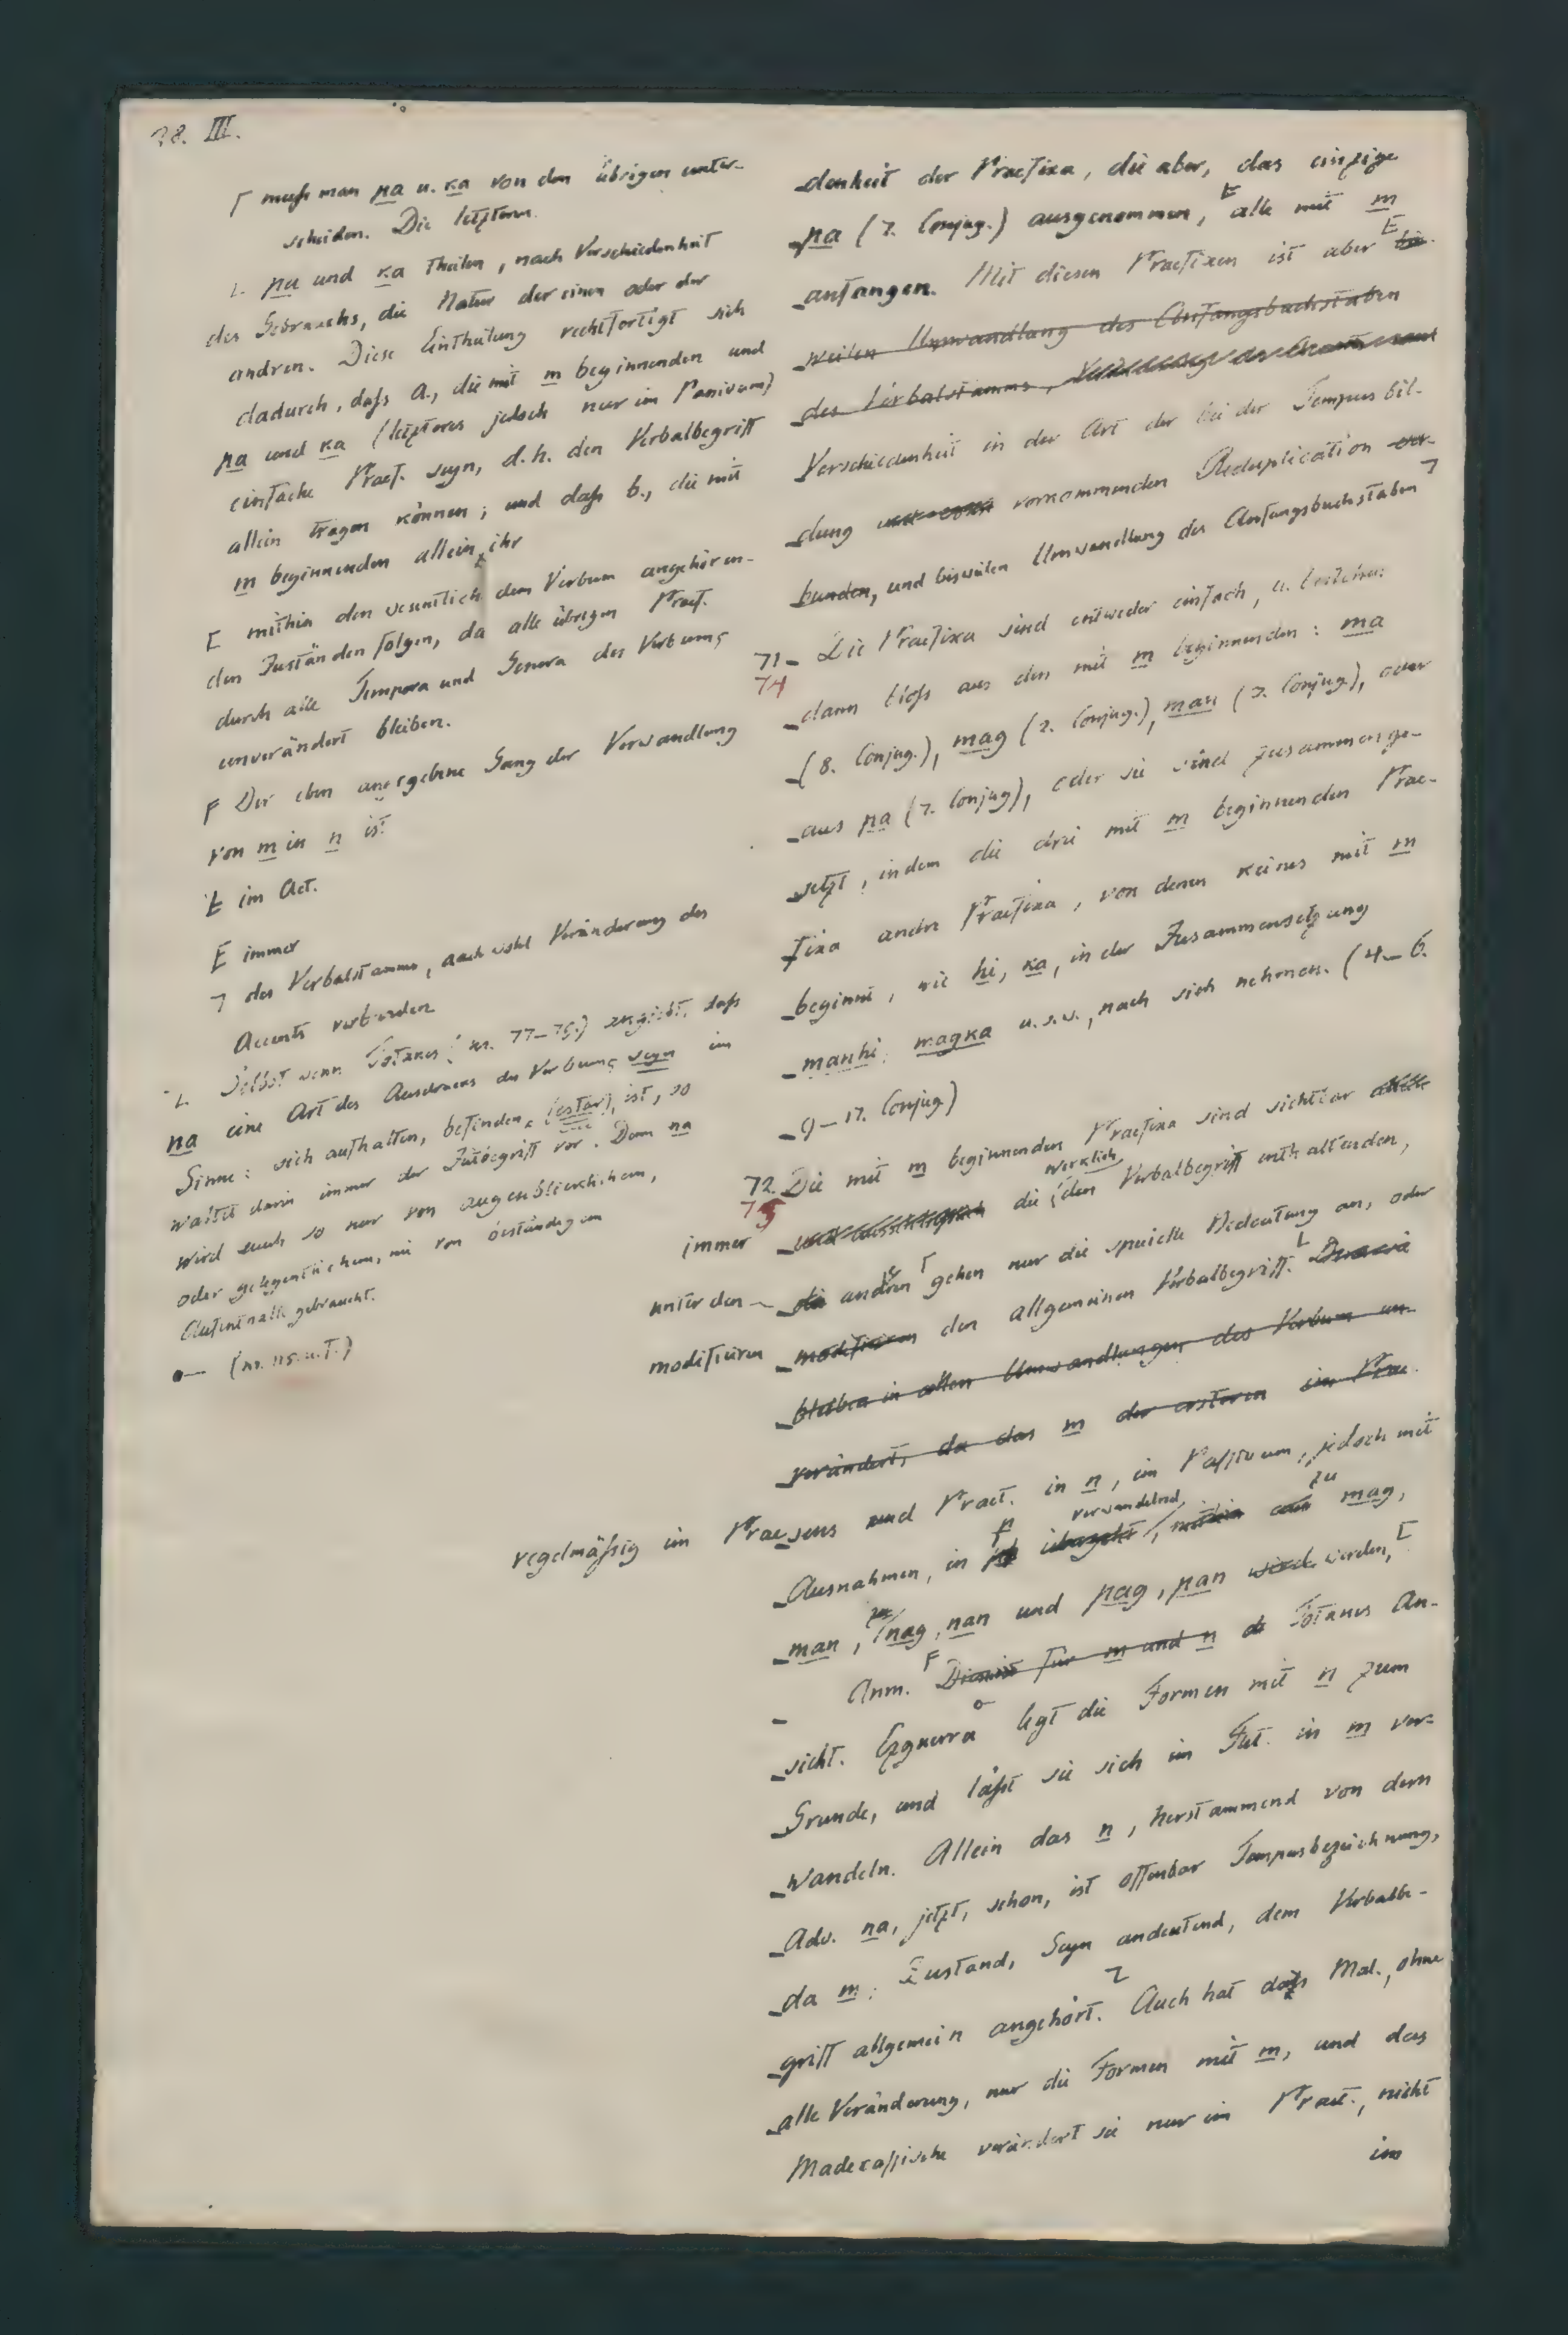 38. III.
Γ muß man pa u. ka von den übrigen unter-
scheiden. Die letztern
L pa und ka theilen, nach Verschiedenheit
des Gebrauchs, die Natur der einen oder der
andren. Diese Eintheilung rechtfertigt sich
dadurch, daß a., die mit m beginnenden und
pa und ka (letzteres jedoch nur im Passivum)
einfache Praef. seyn, d.h. den Verbalbegriff
allein tragen können; und daß b., die mit
m beginnenden allein ihr
E mithin den wesentlich dem Verbum angehören-
den Zuständen folgen, da alle übrigen Praef.
durch alle Tempora und Genera des Verbums
unverändert bleiben.
F Der eben angegebene Gang der Verwandlung
von m in n ist
E im Act.
E immer
7 des Verbalstamms, auch wohl Veränderung des
Accents verbunden
L Selbst wenn Totanes (nr. 77-79.) angiebt, daß
na eine Art des Ausdrucks des Verbums seyn im
Sinne: sich aufhalten, befinden, (estar), ist, so
waltet darin immer der Zeitbegriff vor. Denn na
wird auch so nur von augenblicklichem,
oder gelegentlichem, nie von beständigem
Aufenthalte gebraucht.
(nr. 115. u. f.)
denheit der Praefixa, die aber, das einzige
pa (7. Conjug.) ausgenommen, E alle mit m
anfangen. Mit diesen Praefixen ist aber E bis-
weilen Umwandlung des Anfangsbuchstaben
des Verbalstamms,
Verschiedenheit in der Art der bei der Tempus bil-
dung vorkommenden Reduplication ver-
bunden, und bisweilen Umwandlung des Anfangsbuchstaben 7
71 Die Praefixa sind entweder einfach, u. bestehen
74
dann bloß aus den mit m beginnenden: ma
(8. Conjug.), mag (2. Conjug.), man (3. Conjug.), oder
aus pa (7. Conjug), oder sie sind zusammenge-
setzt, indem die drei mit m beginnenden Prae-
fixa andre Praefixa, von denen keines mit m
beginnt, wie hi, ka, in der Zusammensetzung
manhi, magka u.s.w., nach sich nehmen. (4-6.
9-17. Conjug.)
72. Die mit m beginnenden Praefixa sind sichtbar
75
wirklich
immer die den Verbalbegriff enthaltenden,
unter den die andren Γ gehen nur die specielle Bedeutung an, oder
modificiren modificiren den allgemeinen Verbalbegriff. L
bleiben in allen Umwandlungen des Verbum un-
verändert, da das m der ersteren im Prae
regelmäßig im Praesens und Praet. in n, im Passivum, jedoch mit
verwandelnd zu
Ausnahmen, in p übergeht, mithin mag,
man, nag, nan und pag, pan wird werden, E
Anm. F für m und n Totanes An-
sicht. Ezguerra legt die Formen mit n zum
Grunde, und läßt sie sich im Fut. in m ver-
wandeln. Allein das n, herstammend von dem
Adv. na, jetzt, schon, ist offenbar Tempusbezeichnung,
da m: Zustand, Seyn andeutend, dem Verbalbe-
griff allgemein angehört. L Auch hat das Mal., ohne
alle Veränderung, nur die Formen mit m, und das
Madecassische verändert sie nur im Praet., nicht
im